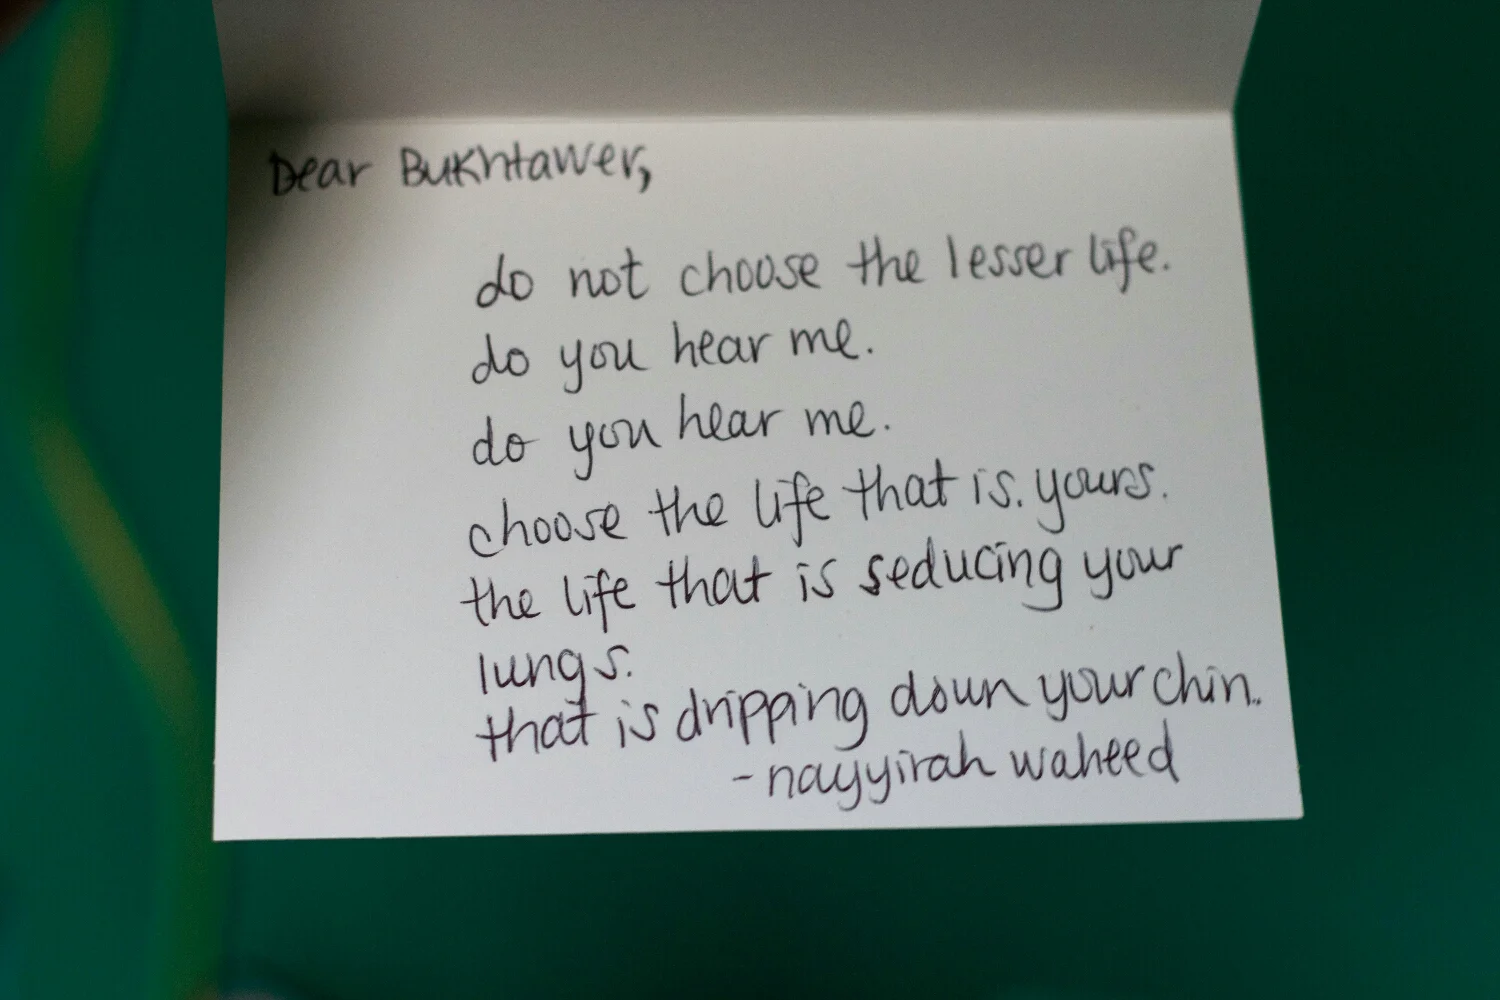 Dear Bukhtawer,
do not choose the lesser life.
do you hear me.
do you hear me.
choose the life that is. yours.
the life that is seducing your
lungs.
that is dripping down your chin.
-nayyirah waheed